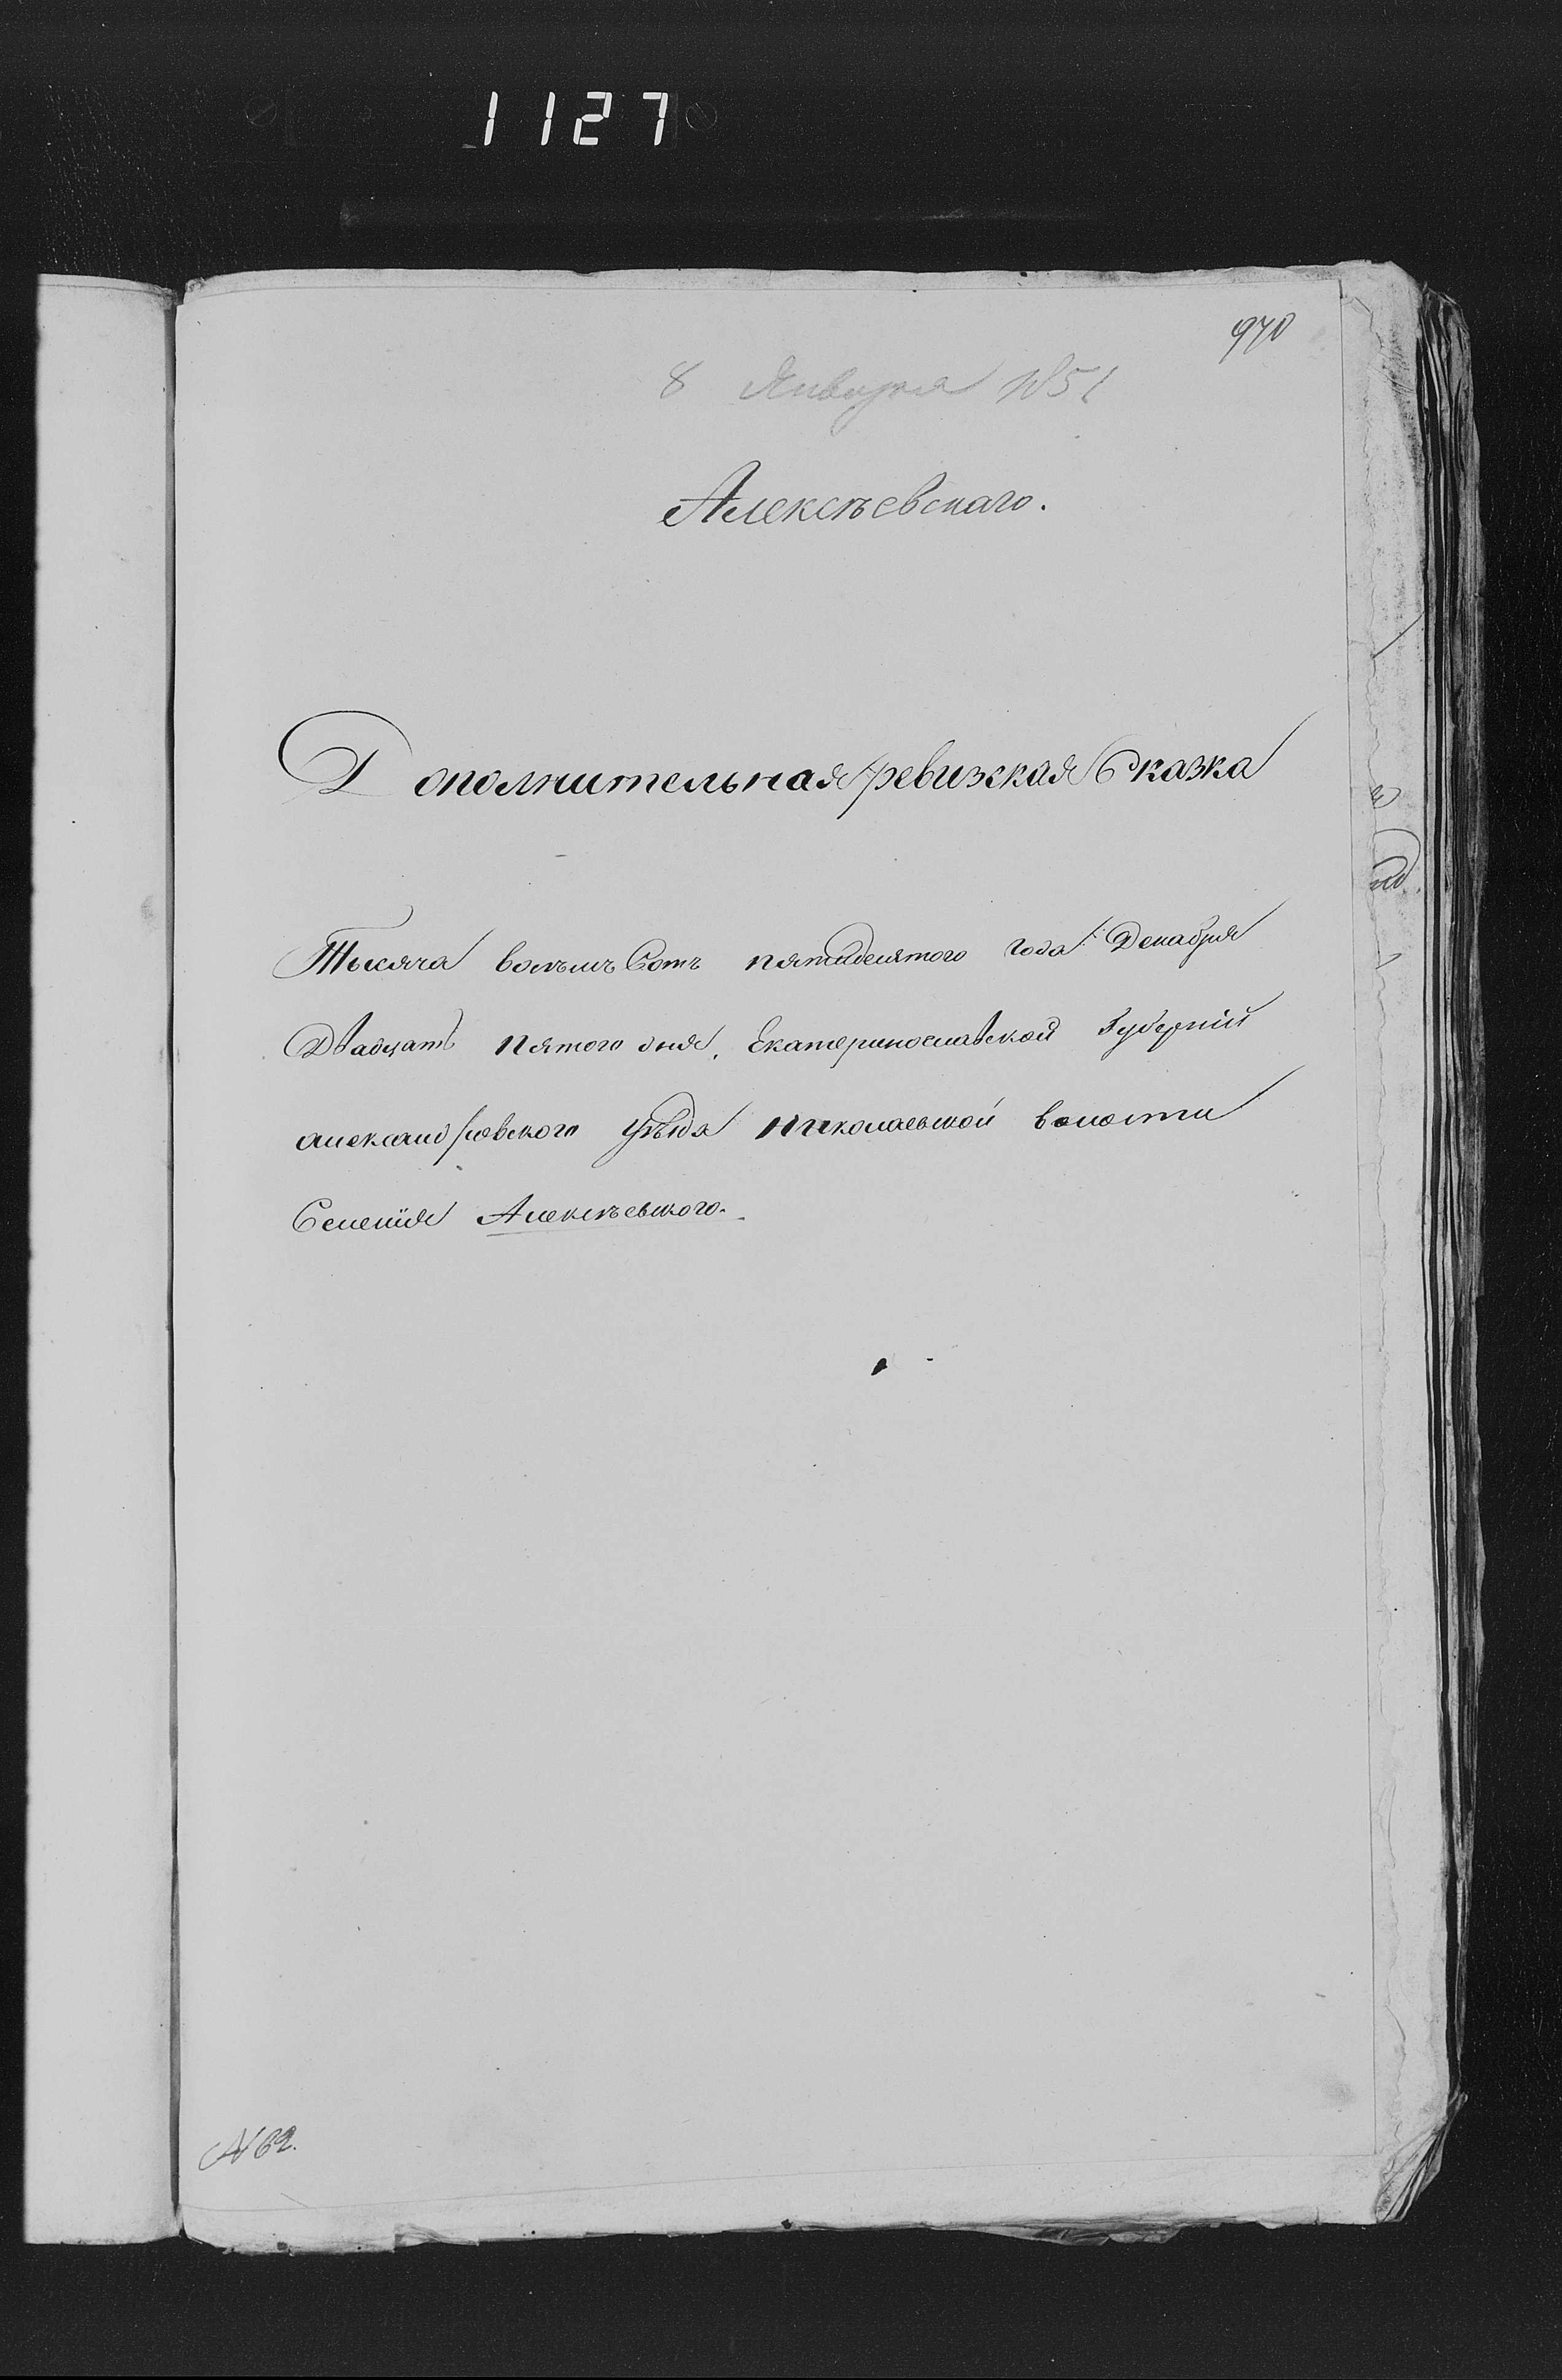 1127
970
8 Января 1851
Алексѣевскаго.
Дополнительная ревизская Сказка
Тысяча восемь Сотъ пятидесятого года Декабря
Двадцать пятого дня, Екатеринославской Губерніи
александровского уѣзда николаевской волости
Селенія Алексѣевского.
№ 62.